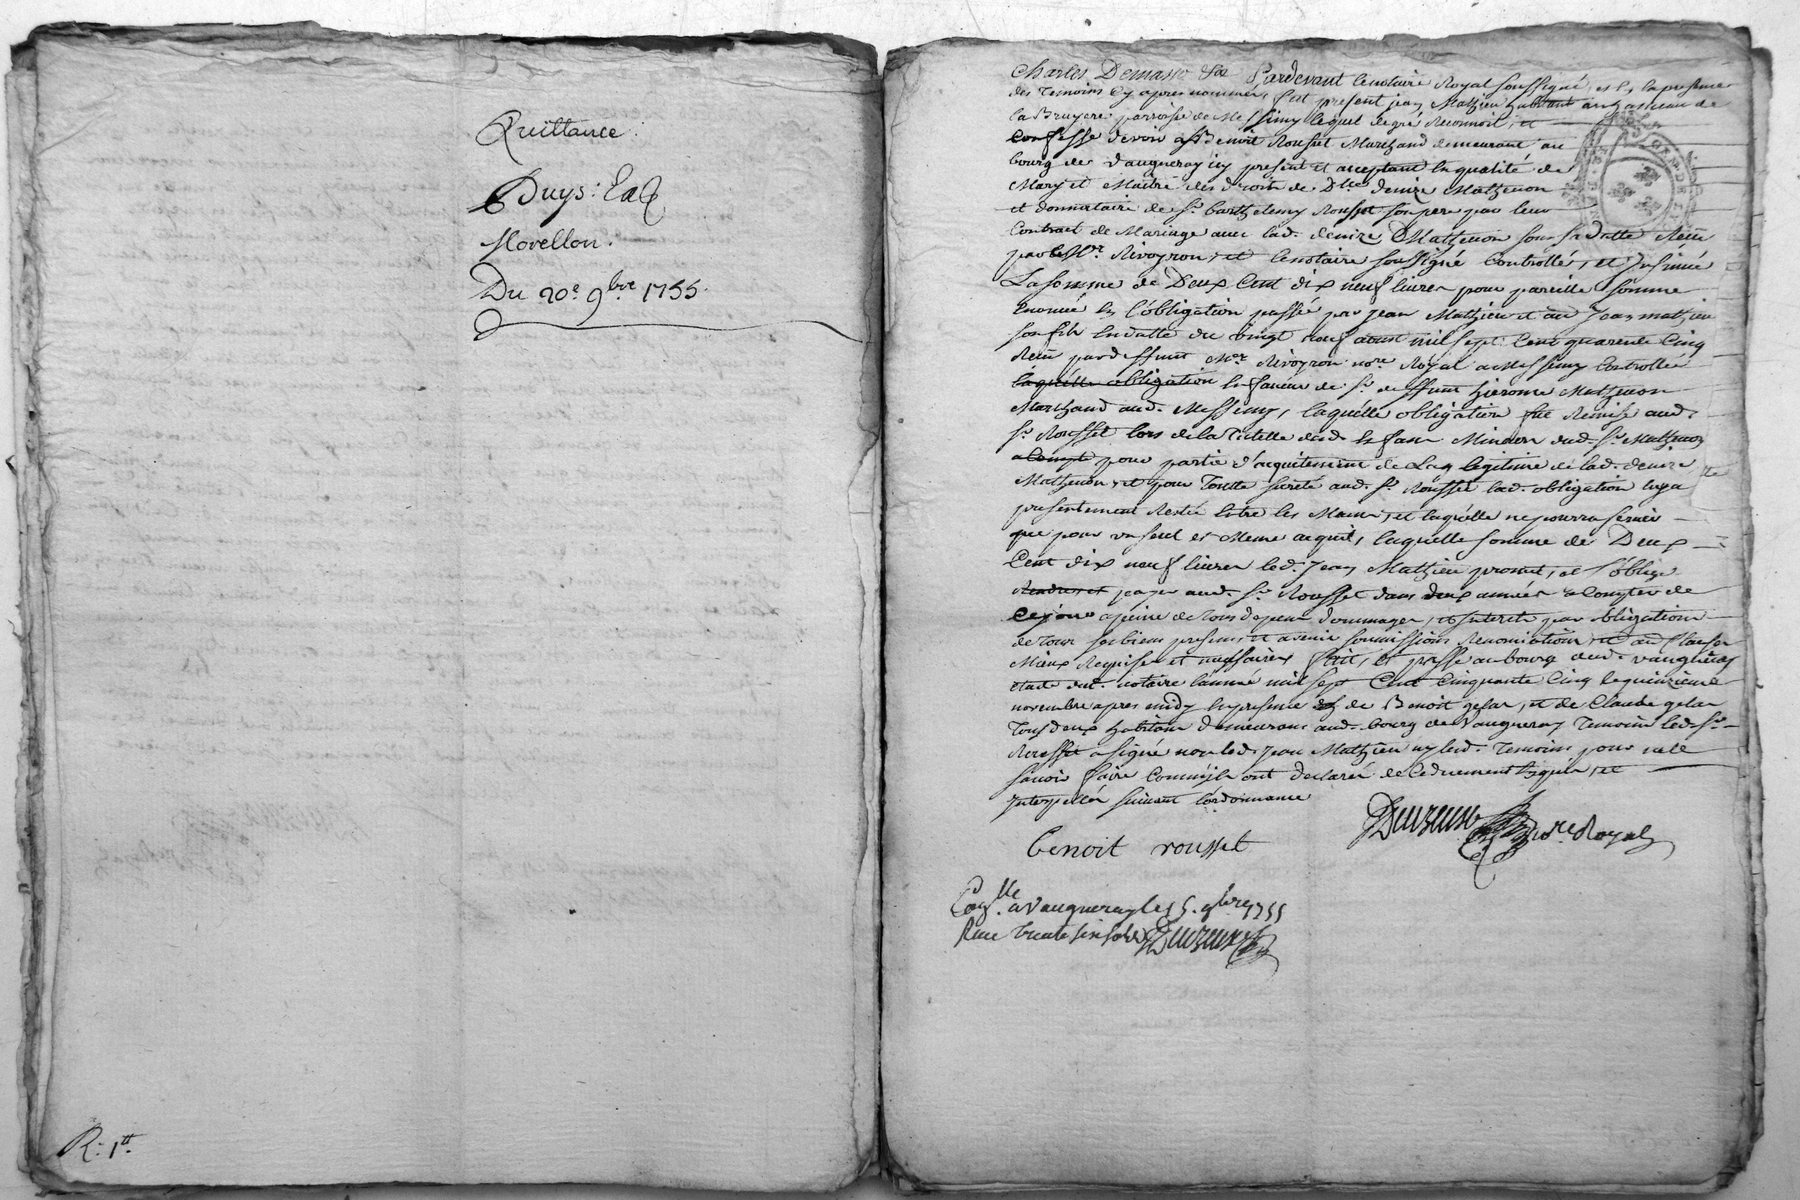 Quittance
Duys :
Morellon.
Du 20e 9bre 1755.
R: 1tt
Charles Demasso &a Pardevant le notaire Royal soussigné, et en la presence
des Temoins cy apres nommés, fut present jean Mathieu habitant au hameau de
la Bruyere parroisse de Messimy lequel de gré Reconnoit, et
confesse devoir a Sr Benoit Rousset Marchand demeurant au
bourg de Vaugneray icy present et acceptant en qualité de
Mary et Maitre des droits de Dlle Mathevon
et donnataire de Sr Barthelemy Rousset son pere par leur
Contract de Mariage avec lad. Mathevon sous sa datte Reçu
par Me Rivoyron, et le notaire soussigné Controllé, et Insinué
La somme de Deux Cent dix neuf livres pour pareille somme
enoncée en l'obligation passée par jean Mathieu et au Jean mathieu
son fils en datte du vingt neuf aoust mil sept Cent quarente Cinq
Reçu par deffunt Me Rivoyron nore Royal a Messimy Controllée
laquelle obligation en faveur de Sr deffunt hierome Mathevon
Marchand aud. Messimy, laquelle obligation fut Remise aud.
Sr Rousset lors de la Tutelle desd. enfans Mineurs dud. Sr Mathevon
a Compte pour partie d'acquittement de La legitime de lad.
Mathevon, et pour Toutte sureté aud. Sr Rousset lad. obligation luy a
presentement Restée Entre les Mains, et laquelle ne pourra servir
que pour un seul et Meme acquit, laquelle somme de Deux
Cent dix neuf livres led. Jean Mathieu promet, et s'oblige
Rendre et payer aud. Sr Rousset dans deux années a Compter de
ce jour a peine de tous depens Dommages, et interets par obligation
de tous ses biens presens, et avenir soumissions Renonciations, et au Clauses
Mieux Requises et necessaires fait, et passé au bourg dud. vaugneray
etude dud. notaire l'année mil sept Cent Cinquante Cinq le quinzieme
novembre apres midy en presence de Benoit gelas, et de Claude gelas
Tous deux habitans Demeurans aud. bourg de Vaugneray Temoins led. Sr
Rousset a signé non led. Jean Mathieu ny lesd. Temoins pour ne le
savoir faire Comme ils ont declaré de ce duement enquis, et
Interpellés suivant l'ordonnance
Benoit rousset
nore Royal
Conlle a Vaugneray le 15. 9bre 1755
Reçu trente six sols